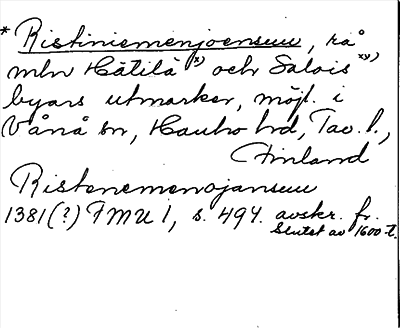 * Ristiniemenjoensuu, rå
mln Hätilä x) och Salois xx)
byars utmarker, möjl. i
Vånå sn, Hauho hd, Tav. l.,
Finland
Ristenemenojansuu
1381(?) FMU 1, s. 494. avskr. fr.
slutet av 1600-t.